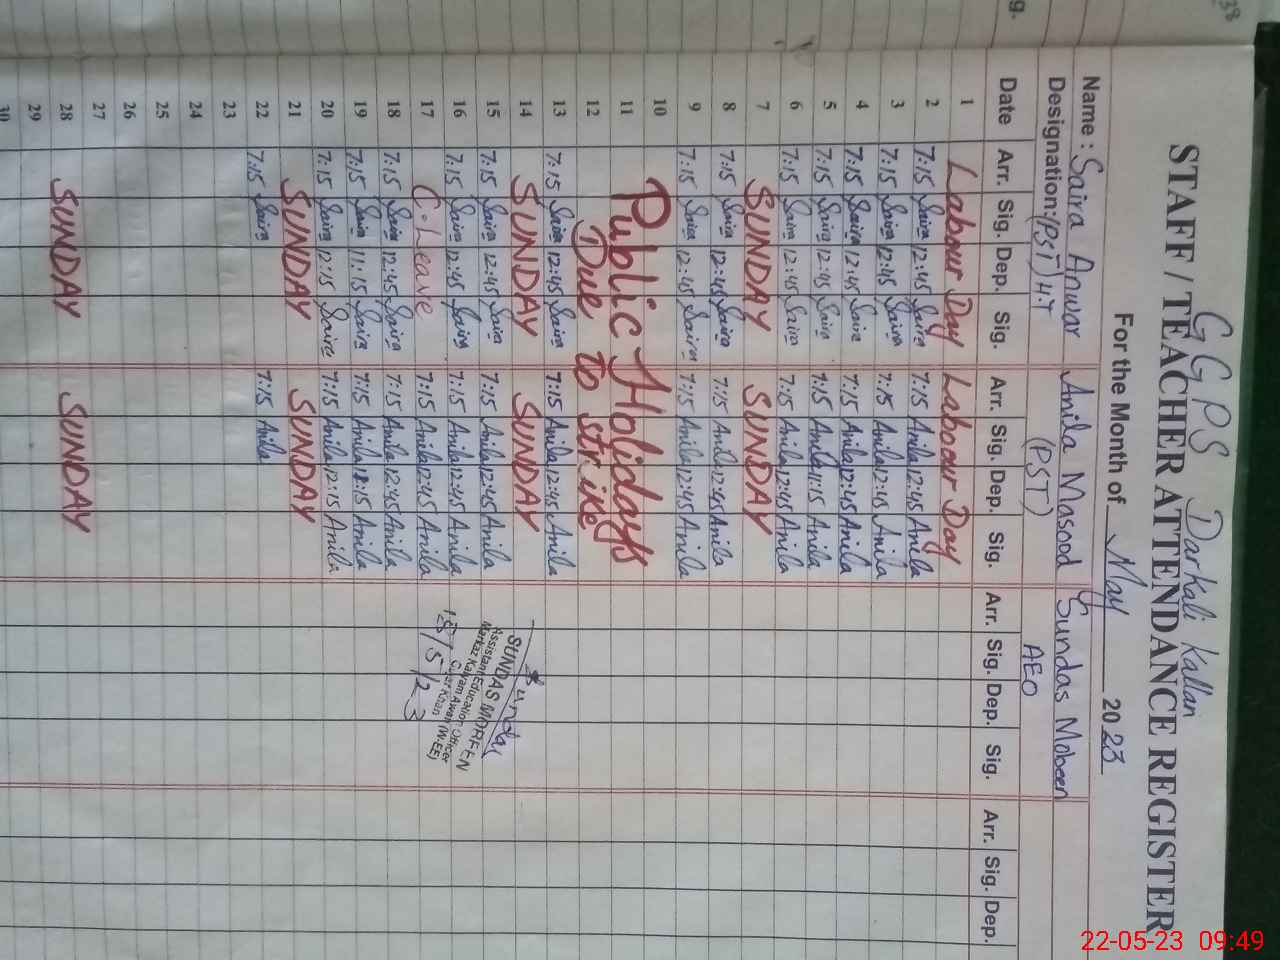 38
g.
GGPS Darkali Kallan
STAFF / TEACHER ATTENDANCE REGISTER
For the Month of May 2023
Name : Saira Anwar Anila Masood Sundas Mobeen
Designation: (PST) H.T (PST) AEO
Date Arr. Sig. Dep. Sig. Arr. Sig. Dep. Sig. Arr. Sig. Dep. Sig. Arr. Sig. Dep.
1 Labour Day Labour Day
2 7:15 Saira 12:45 Saira 7:15 Anila 12:45 Anila
3 7:15 Saira 12:45 Saira 7:15 Anila 12:45 Anila
4 7:15 Saira 12:45 Saira 7:15 Anila 12:45 Anila
5 7:15 Saira 12:45 Saira 7:15 Anila 11:15 Anila
6 7:15 Saira 12:45 Saira 7:15 Anila 12:45 Anila
7 SUNDAY SUNDAY
8 7:15 Saira 12:45 Saira 7:15 Anila 12:45 Anila
9 7:15 Saira 12:45 Saira 7:15 Anila 12:45 Anila
10
11 Public Holidays
12 Due to strike
13 7:15 Saira 12:45 Saira 7:15 Anila 12:45 Anila
14 SUNDAY SUNDAY
15 7:15 Saira 12:45 Saira 7:15 Anila 12:45 Anila
16 7:15 Saira 12:45 Saira 7:15 Anila 12:45 Anila
17 C. Leave 7:15 Anila 12:45 Anila
18 7:15 Saira 12:45 Saira 7:15 Anila 12:45 Anila
19 7:15 Saira 11:15 Saira 7:15 Anila 11:15 Anila
20 7:15 Saira 12:15 Saira 7:15 Anila 12:15 Anila
21 SUNDAY SUNDAY
22 7:15 Saira 7:15 Anila
23
24
25
26
27
28 SUNDAY SUNDAY
29
30
Sundas
SUNDAS MOBEEN
Assistant Education Officer
Markaz Kalyam Awan (W-EE)
18/5/23
22-05-23 09:49